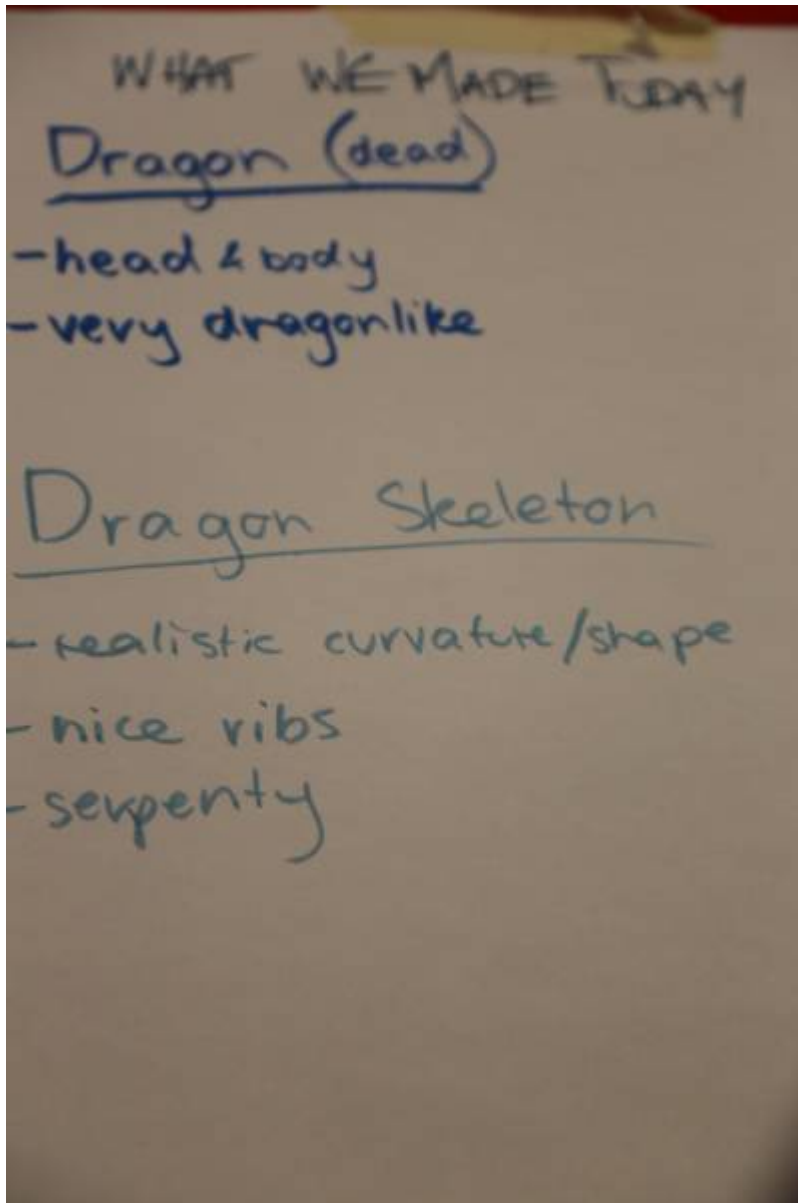 WHAT WE MADE TODAY
Dragon (dead)
- head & body
- very dragonlike
Dragon Skeleton
- realistic curvature/shape
- nice ribs
- serpenty